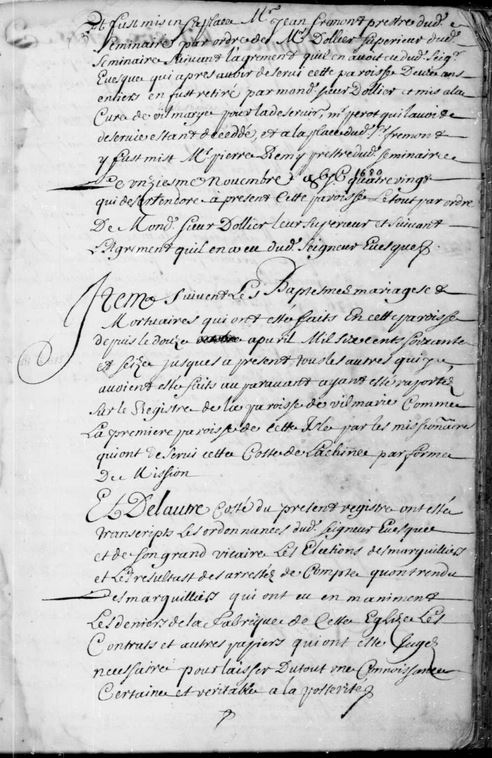 Et fust mis en sa place Mr Jean fremont prestre dud.
Seminaire par ordre de Mr Dollier superieur dud.
Seminaire suivant lagrement quil en avoit eu dud. Seigr
Evesque qui apres avoir deservi cette paroisse Deux ans
entiers en fust retiré par mond. sieur Dollier et mis a la
Cure de vilmarye pour la deservir, mr perot qui lavoit
deservie estant deceddé, et a la place dud. Sr fremont
y fust mist Mr pierre Remy prestre dud. seminaire
Le vnziesme Novembre 1680 quatre vingt
qui desert encore a present Cette paroisse Le tout par ordre
De Mond. sieur Dollier leur superieur et suivant
L'agrement quil en a eu dud. Seigneur Evesque
Item Suivent Les Baptesmes mariages et
Mortuaires qui ont esté faits En cette paroisse
depuis le douze apvril Mil Six cents soixante
et seize jusques a present tous les autres qui y
avoient esté faits au paravant ayant esté raportez
sur le Registre de la paroisse de vilmarie Comme
La premiere paroisse de cette Isle par les missionaires
qui ont deservi cette Coste de Lachine par forme
De Mission
Et De lautre Costé du present registre ont esté
transcripts Les ordonnances dud. seigneur Evesque
et de son grand vicaire Les Elections des marguilliers
et Les resultast des arrestez de Compte quont rendu
Les marguilliers qui ont eu en maniment
Les deniers de la fabrique de Cette Eglize Les
Contrats et autres papiers qui ont esté Jugez
necessaire pour laisser Du tout vne Connoissance
Certaine et veritable a la posterité